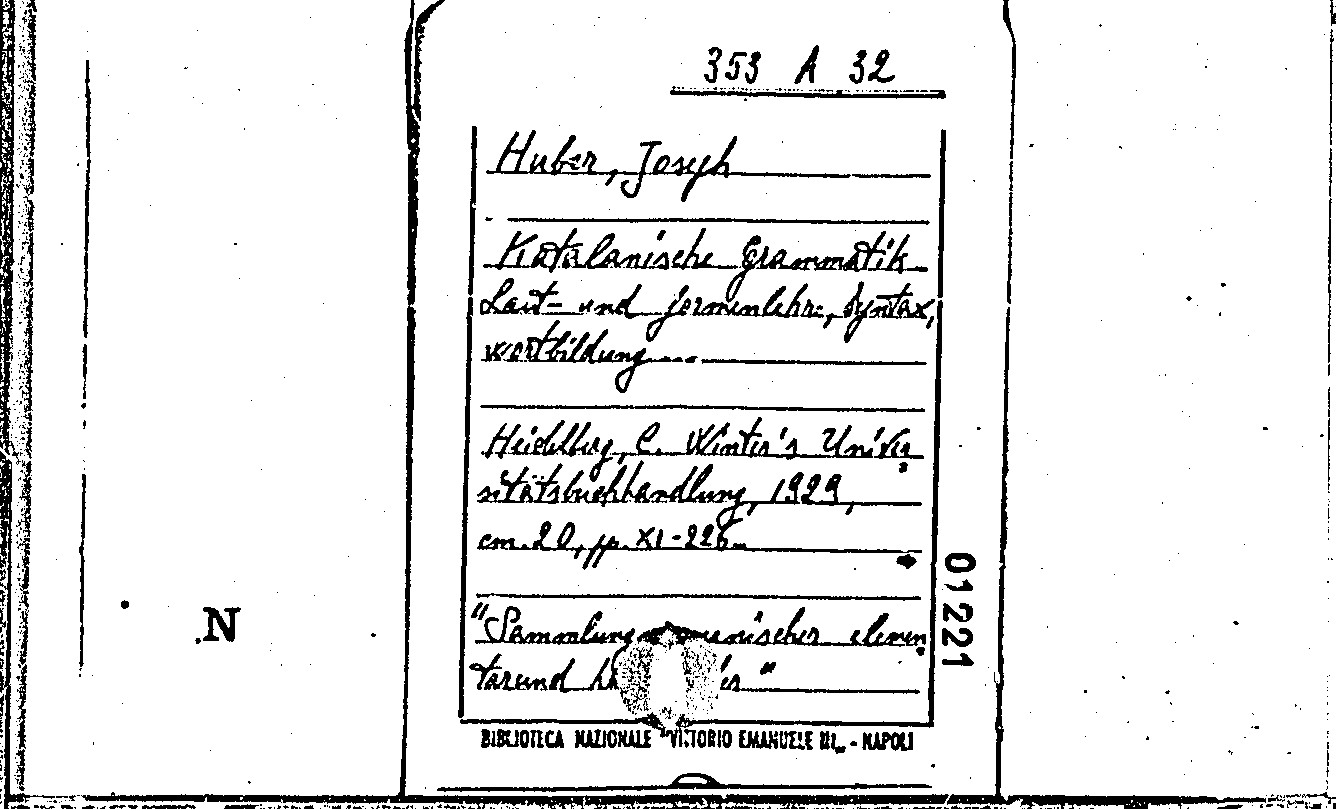 353 A 32
Huber, Joseph
Katalanische Grammatik
Laut- und formenlehre, Syntax,
wortbildung ...
Heidelberg, C. Winter's Univer
sitätsbuchhandlung, 1929,
cm. 20, pp. XI-226.
"Sammlung romanischer elemen
tarund
01221
N
BIBLIOTECA NAZIONALE "VITTORIO EMANUELE III" - NAPOLI